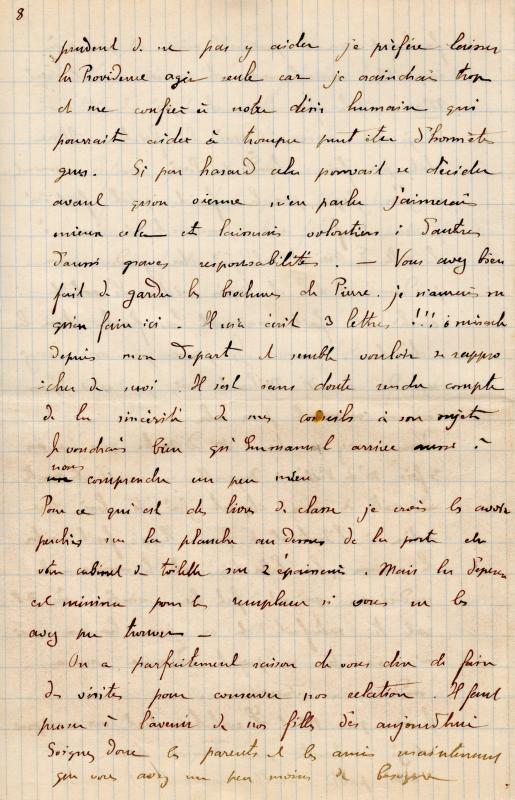 8
prudent de ne pas y aider je préfère laisser
la Providence agir seule car je craindrais trop
de me confier à notre désir humain qui
pourrait aider à tromper peut être d'honnêtes
gens. Si par hasard cela pouvait se décider
avant qu'on vienne m'en parler j'aimerais
mieux cela et laisserais volontiers à d'autres
d'aussi graves responsabilités. — Vous avez bien
fait de garder les brochures de Pierre. je n'aurais su
qu'en faire ici. Il m'a écrit 3 lettres !!! ô miracle
depuis mon départ et semble vouloir se rappro
cher de moi. Il s'est sans doute rendu compte
de la sincérité de mes conseils à son sujet
Je voudrais bien qu'Emmanuel arrive aussi à
nous comprendre un peu mieux
Pour ce qui est des livres de classe je crois les avoir
perchés sur la planche au dessus de la porte du
votre cabinet de toilette sur 2 épaisseurs. Mais la dépense
est minime pour les remplacer si vous ne les
avez pu trouver —
On a parfaitement raison de vous dire de faire
des visites pour conserver nos relation. Il faut
penser à l'avenir de nos filles dès aujourd'hui
Soignez donc les parents et les amis maintenant
que vous avez un peu moins de besogne